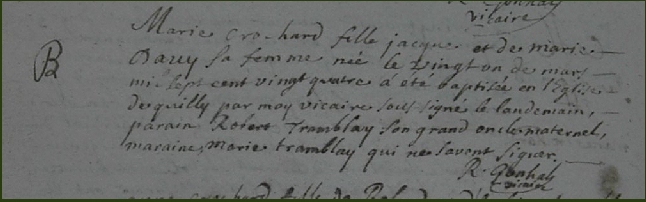 vicaire
B
Marie crochard fille jacque et de marie
Darcy sa femme née le vingt un de mars
mil sept cent vingt quatre a été baptisée en l'Eglise
de quilly par moy vicaire sous signé le landemain,
parain Robert Tramblay son grand oncle maternel,
maraine, Marie tramblay qui ne savent signer
R
vicaire
fille de